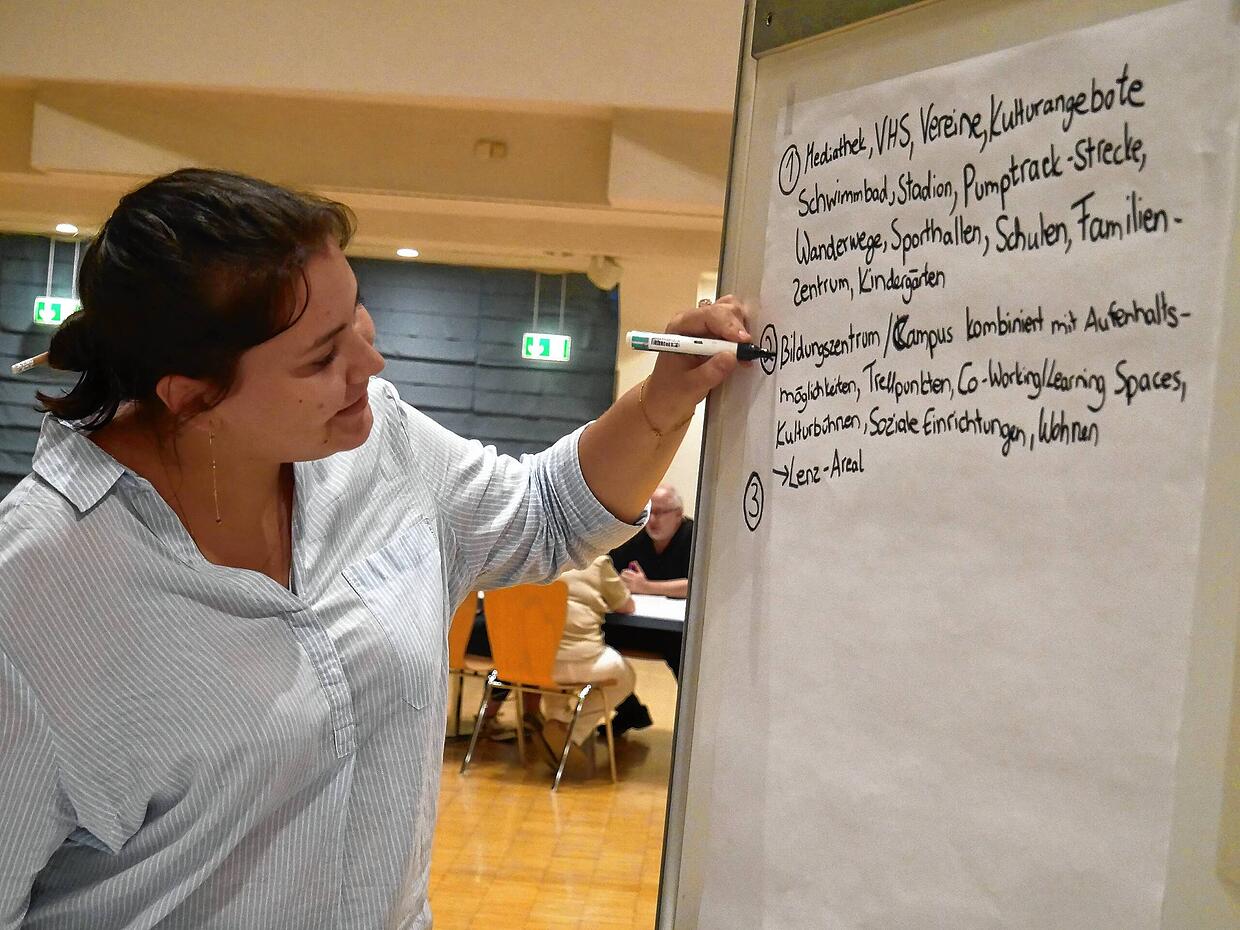 ① Mediathek, VHS, Vereine, Kulturangebote
Schwimmbad, Stadion, Pumptrack-Strecke,
Wanderwege, Sporthallen, Schulen, Familien-
zentrum, Kindergärten
② Bildungszentrum / Campus kombiniert mit Aufenthalts-
möglichkeiten, Treffpunkten, Co-Working/Learning Spaces,
Kulturbühnen, Soziale Einrichtungen, Wohnen
→ Lenz-Areal
③